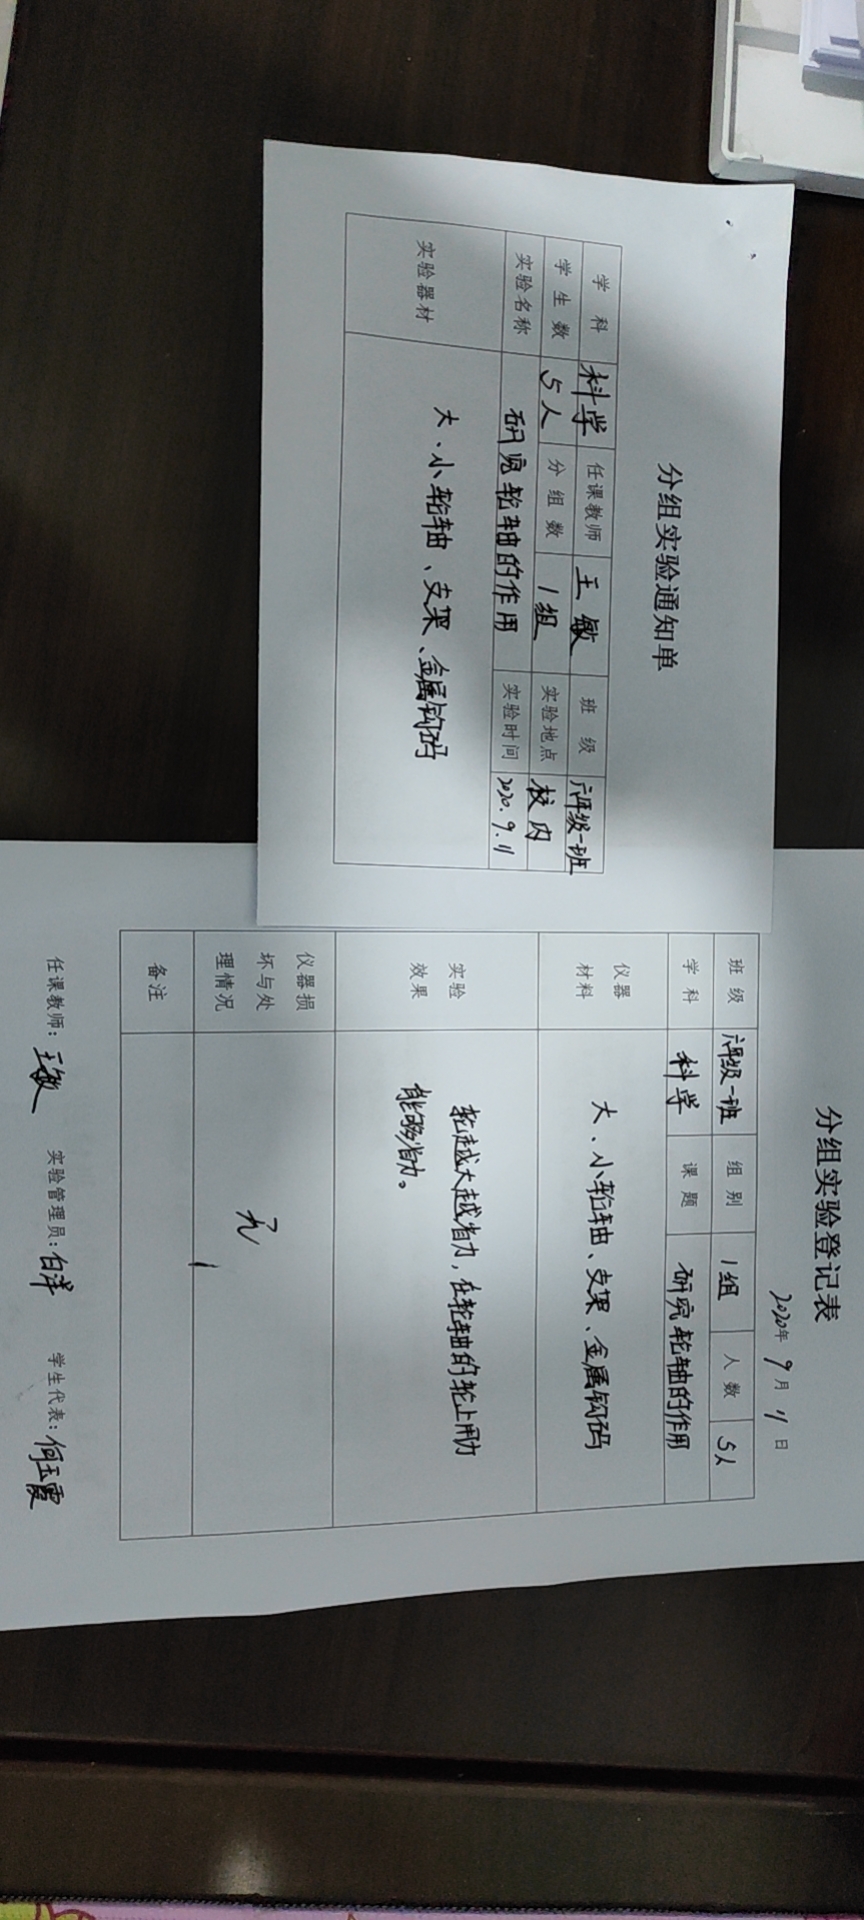 分组实验通知单
学 科 科学 任课教师 王敏 班 级 六年级一班
学 生 数 5人 分 组 数 1组 实验地点 校内
实验名称 研究轮轴的作用 实验时间 2020.9.11
实验器材 大、小轮轴、支架、金属钩码
分组实验登记表
2020年 9月 11日
班 级 六年级一班 组 别 1组 人 数 5人
学 科 科学 课 题 研究轮轴的作用
仪器
材料
大、小轮轴、支架、金属钩码
实验
效果
轮越大越省力,在轮轴的轮上用力
能够省力。
仪器损
坏与处
理情况
无
备注
任课教师:王敏 实验管理员:白洋 学生代表:何玉霞